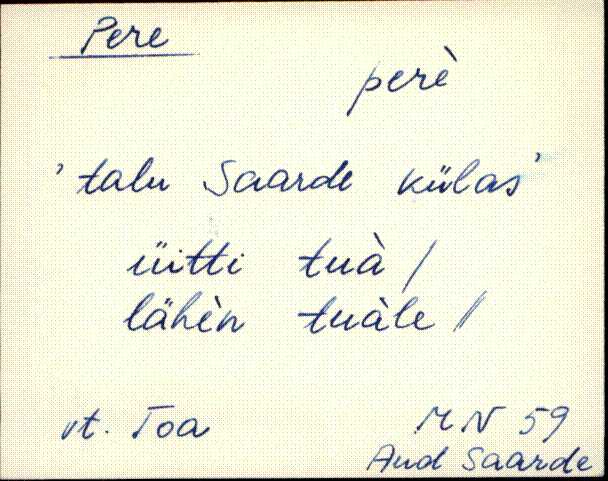 Pere
perè
'talu Saarde külas'
üitti tuà /
lähèn tuàle //
vt. Toa
MN 59
Aud Saarde